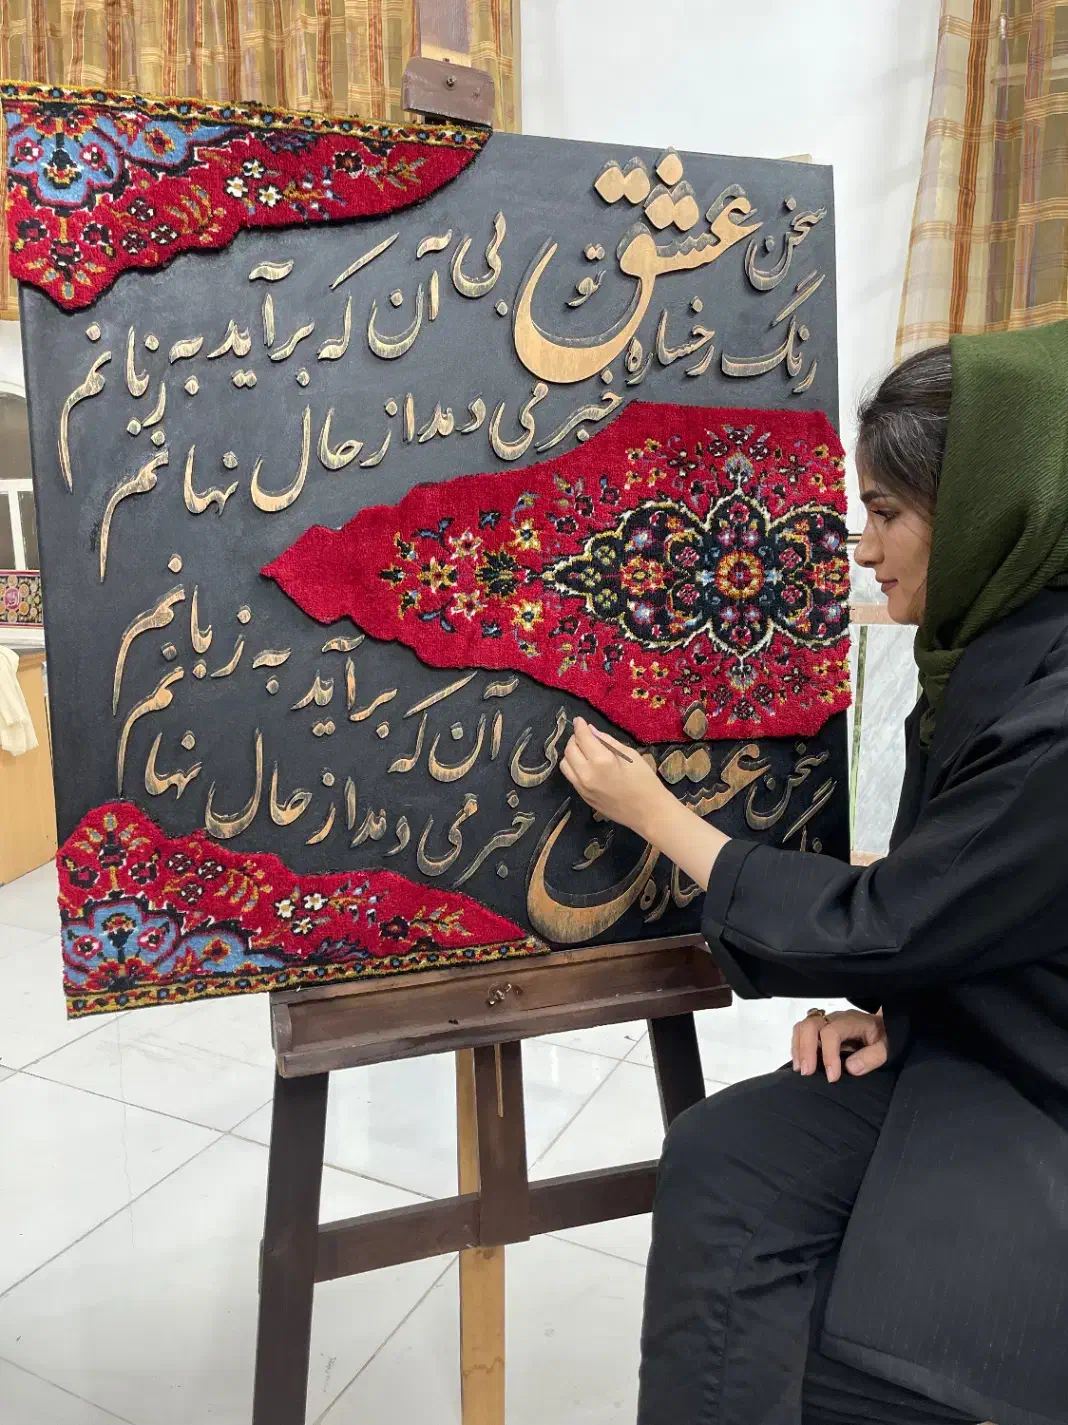 سخن عشق تو بی آن که برآید به زبانم
رنگ رخساره خبر می دهد از حال نهانم
سخن عشق تو بی آن که برآید به زبانم
رخساره خبر می دهد از حال نهانم